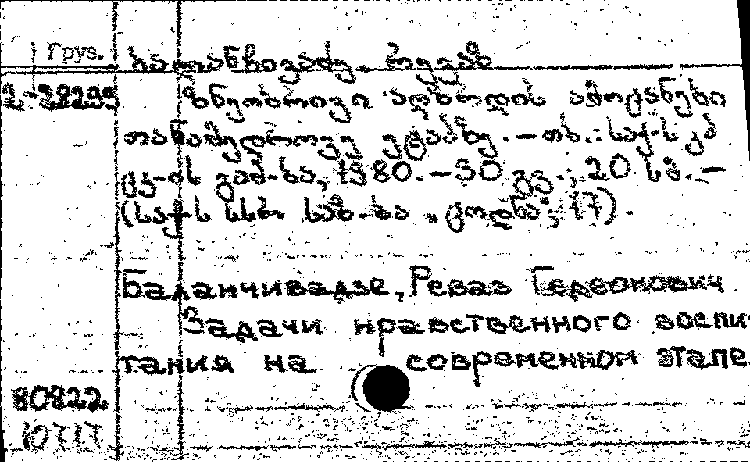 Груз.
ბალანჩივაძე, რევაზ
2-28299 ზნეობრივი აღზრდის ამოცანები
თანამედროვე ეტაპზე. – თბ.: საქ. სკპ
ცკ-ის გამ-ბა, 1980. – 50 გვ.; 20 სმ. –
(საქ. სსრ საზ-ბა „ცოდნა“; 17).
Баланчивадзе, Реваз Гедеонович
Задачи нравственного воспи-
тания на современном этапе
80822